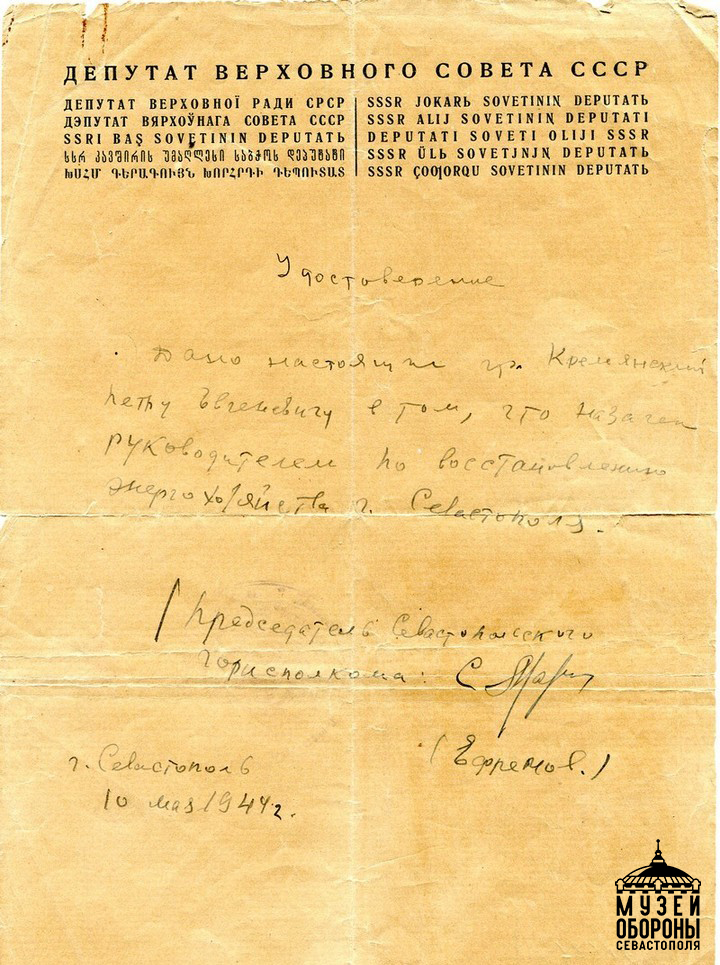 ДЕПУТАТ ВЕРХОВНОГО СОВЕТА СССР
ДЕПУТАТ ВЕРХОВНОЇ РАДИ СРСР
ДЭПУТАТ ВЯРХОЎНАГА СОВЕТА СССР
SSRI BAŞ SOVETININ DEPUTATЬ
ՍՍՀՄ ԳԵՐԱԳՈՒՅՆ ԽՈՐՀՐԴԻ ԴԵՊՈՒՏԱՏ
SSSR JOKARЬ SOVETININ DEPUTATЬ
SSSR ALIJ SOVETINING DEPUTATI
DEPUTATI SOVETI OLIJI SSSR
SSSR ÜLЬ SOVETJNJꞐ DEPUTATЬ
SSSR ÇOOꞐORQU SOVETININ DEPUTATЬ
Удостоверение
Дано настоящим гр. Кремянский
Петру Евгеневичу в том, что назначен
руководителем по восстановлению
энергохозяйства г. Севастополя.
Председатель Севастопольского
горисполкома:
(Ефремов.)
г. Севастополь
10 мая 1944 г.
МУЗЕЙ
ОБОРОНЫ
СЕВАСТОПОЛЯ